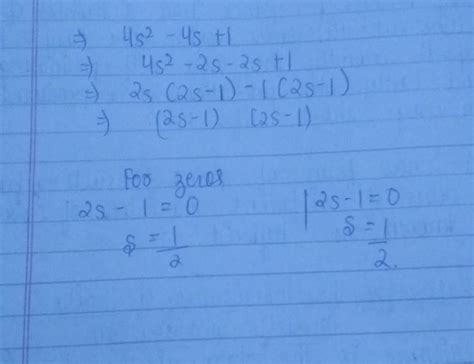 ⇒ 4s² - 4s + 1
⇒ 4s² - 2s - 2s + 1
⇒ 2s (2s-1) - 1 (2s-1)
⇒ (2s-1) (2s-1)
For zeros
2s - 1 = 0 | 2s - 1 = 0
s = 1/2 s = 1/2.